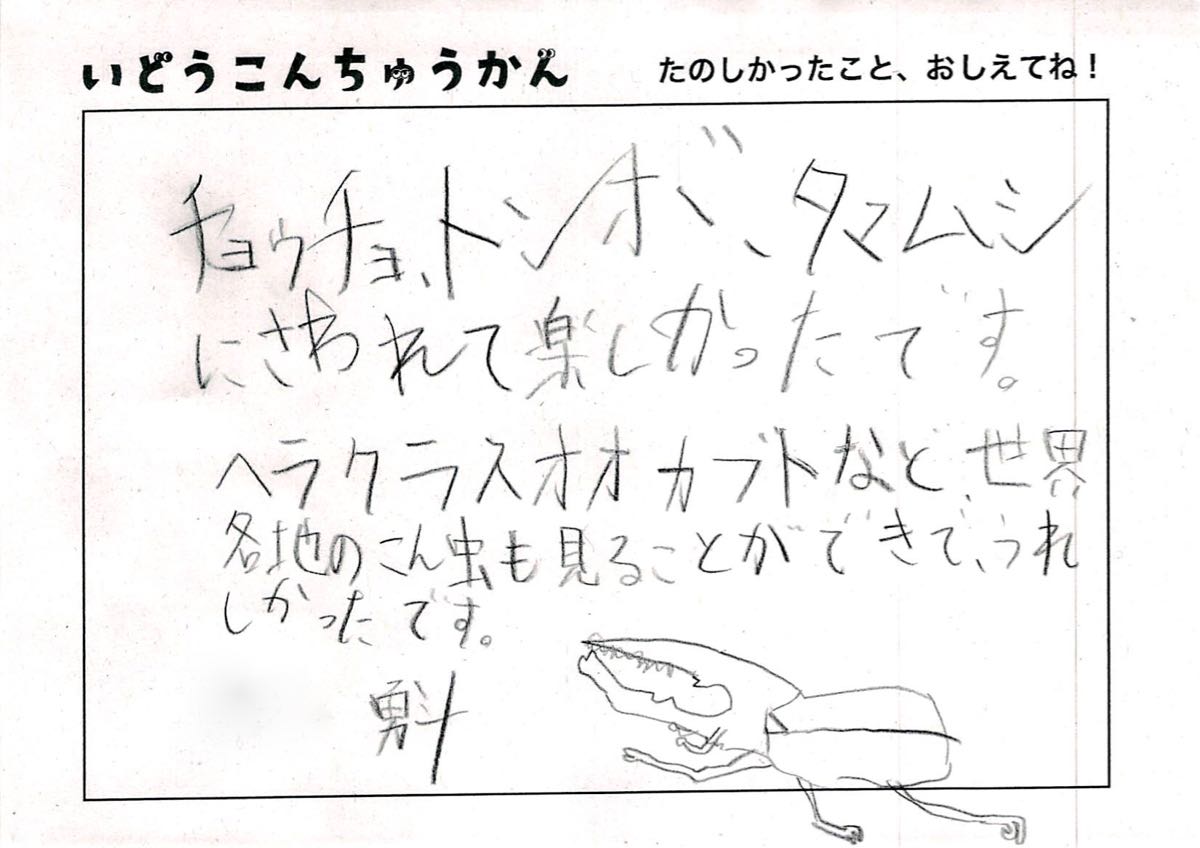 いどうこんちゅうかん
たのしかったこと、おしえてね！
チョウチョ、トンボ、タマムシ
にさわれて楽しかったです。
ヘラクラスオオカブトなど、世界
各地のこん虫も見ることができて、うれ
しかったです。
勇斗